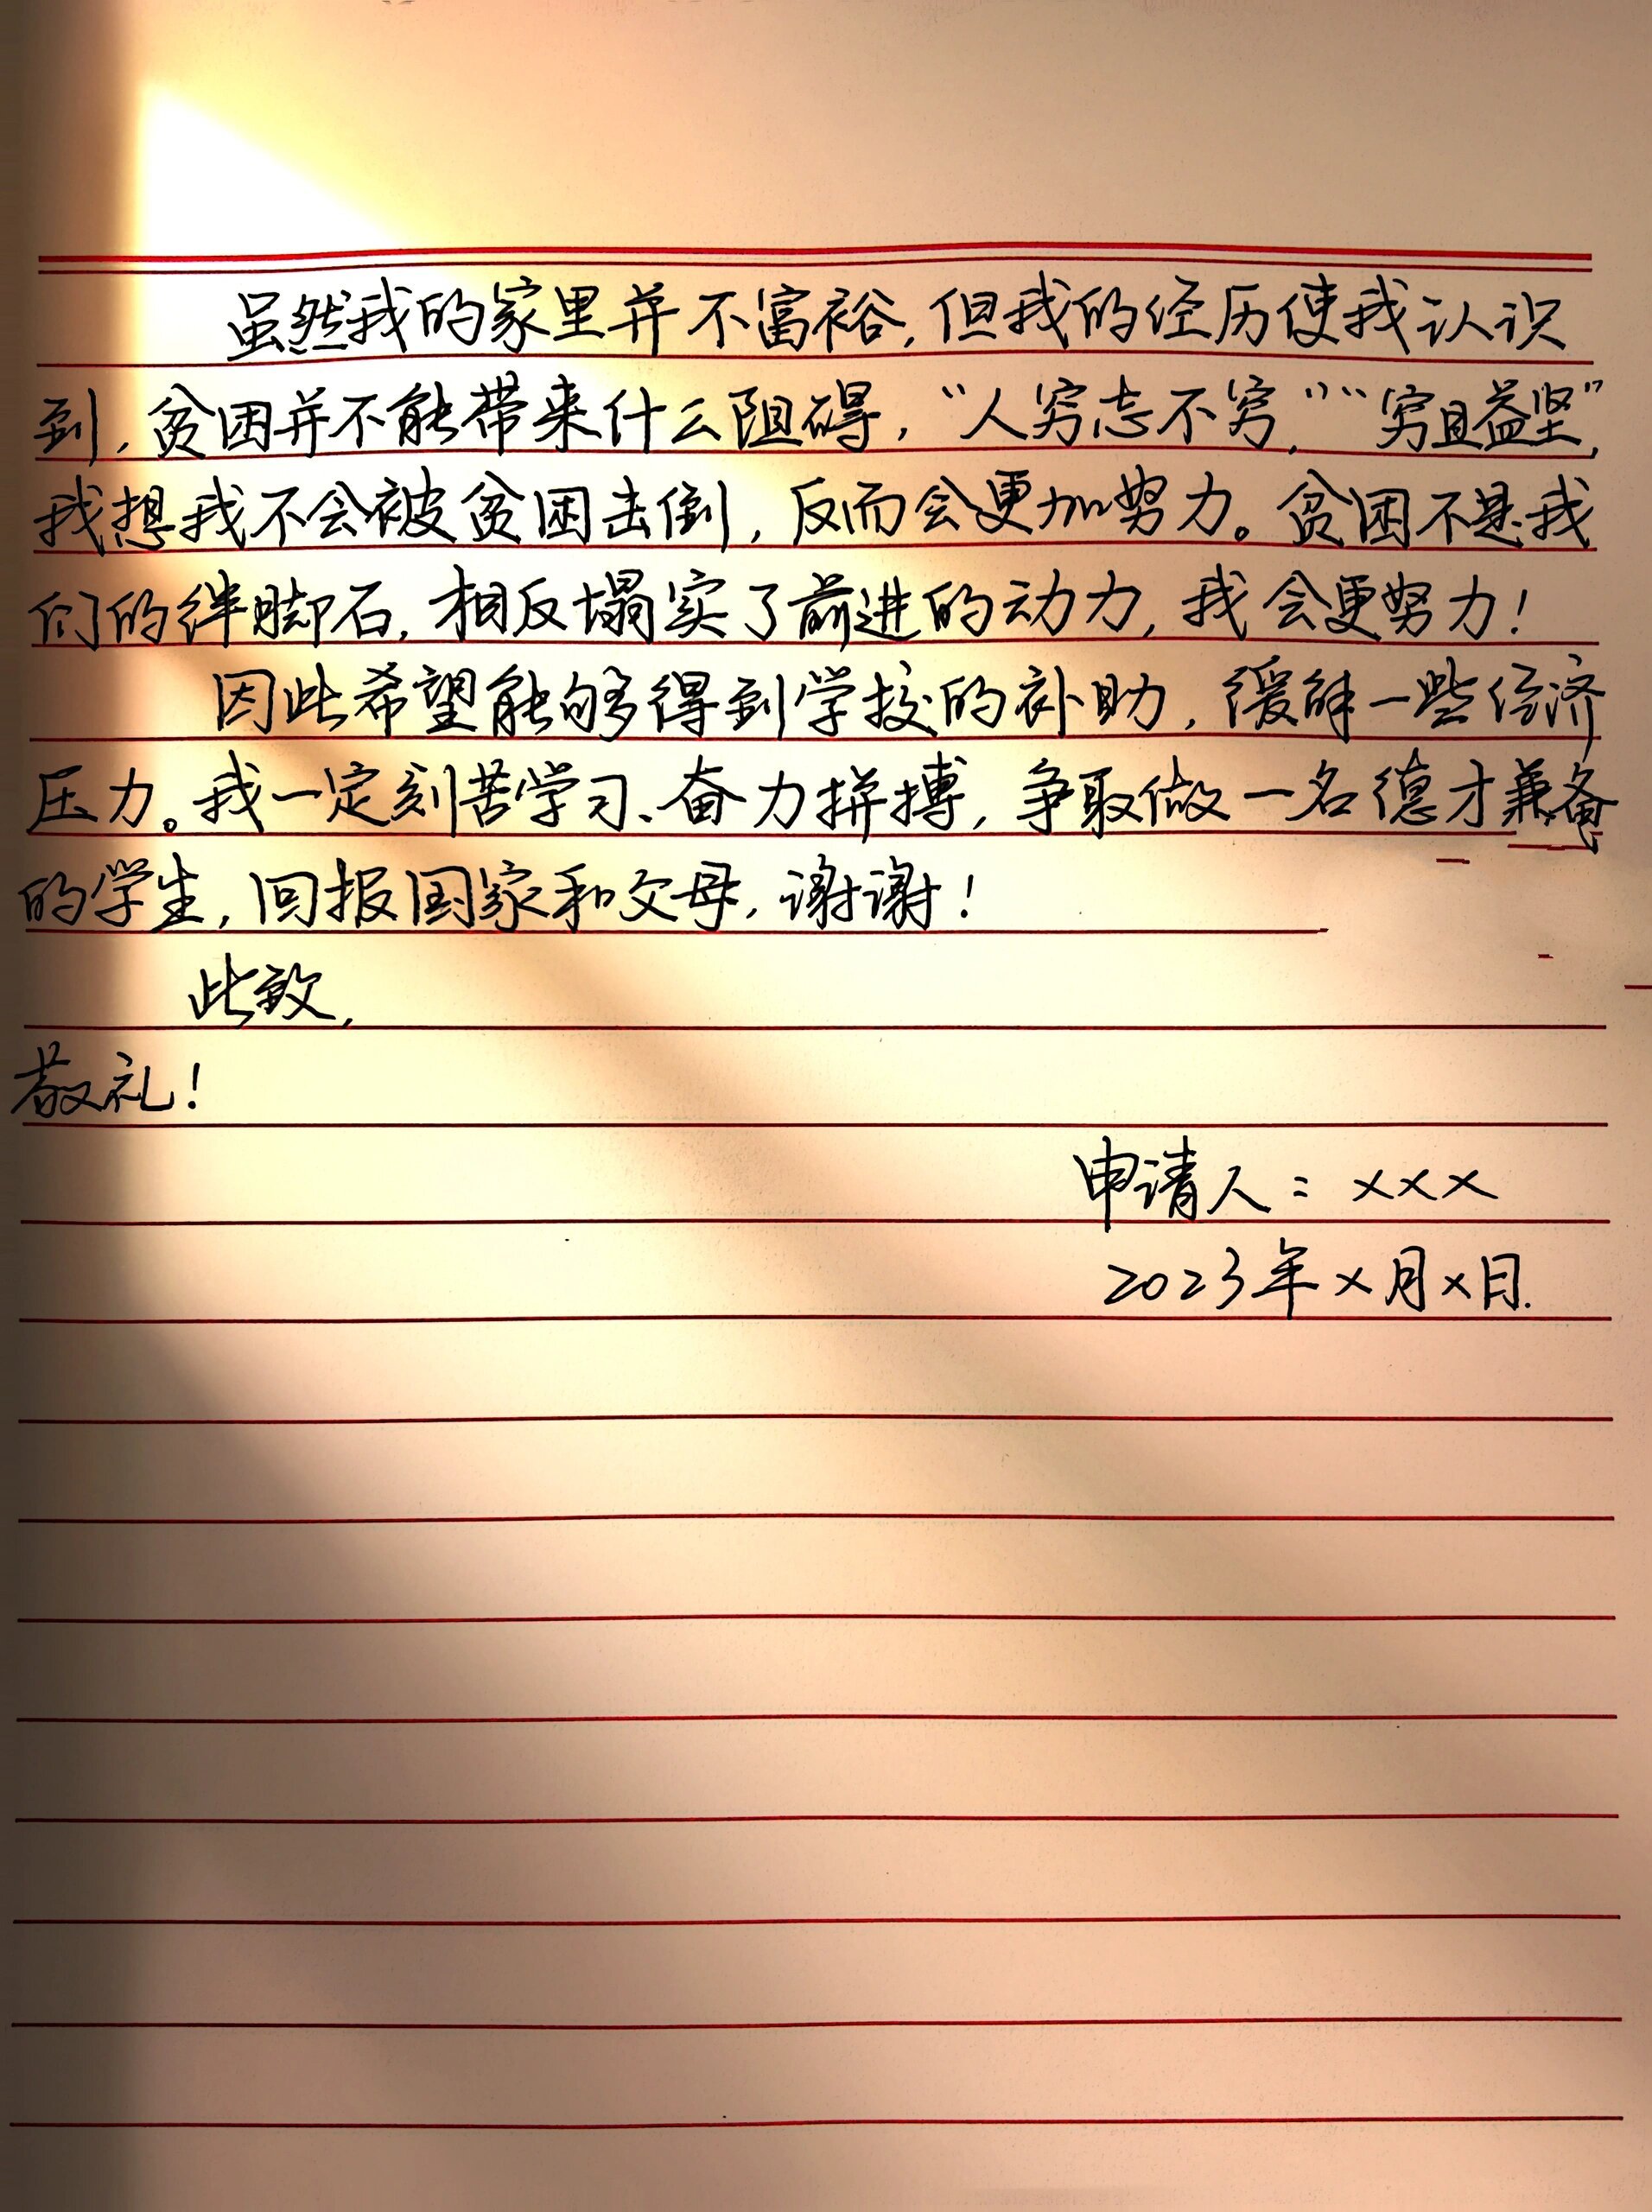 虽然我的家里并不富裕,但我的经历使我认识
到,贫困并不能带来什么阻碍,“人穷志不穷,”“穷且益坚”,
我想我不会被贫困击倒,反而会更加努力。贫困不是我
们的绊脚石,相反塌实了前进的动力,我会更努力!
因此希望能够得到学校的补助,缓解一些经济
压力。我一定刻苦学习、奋力拼搏,争取做一名德才兼备
的学生,回报国家和父母,谢谢!
此致,
敬礼!
申请人:×××
2023年×月×日.